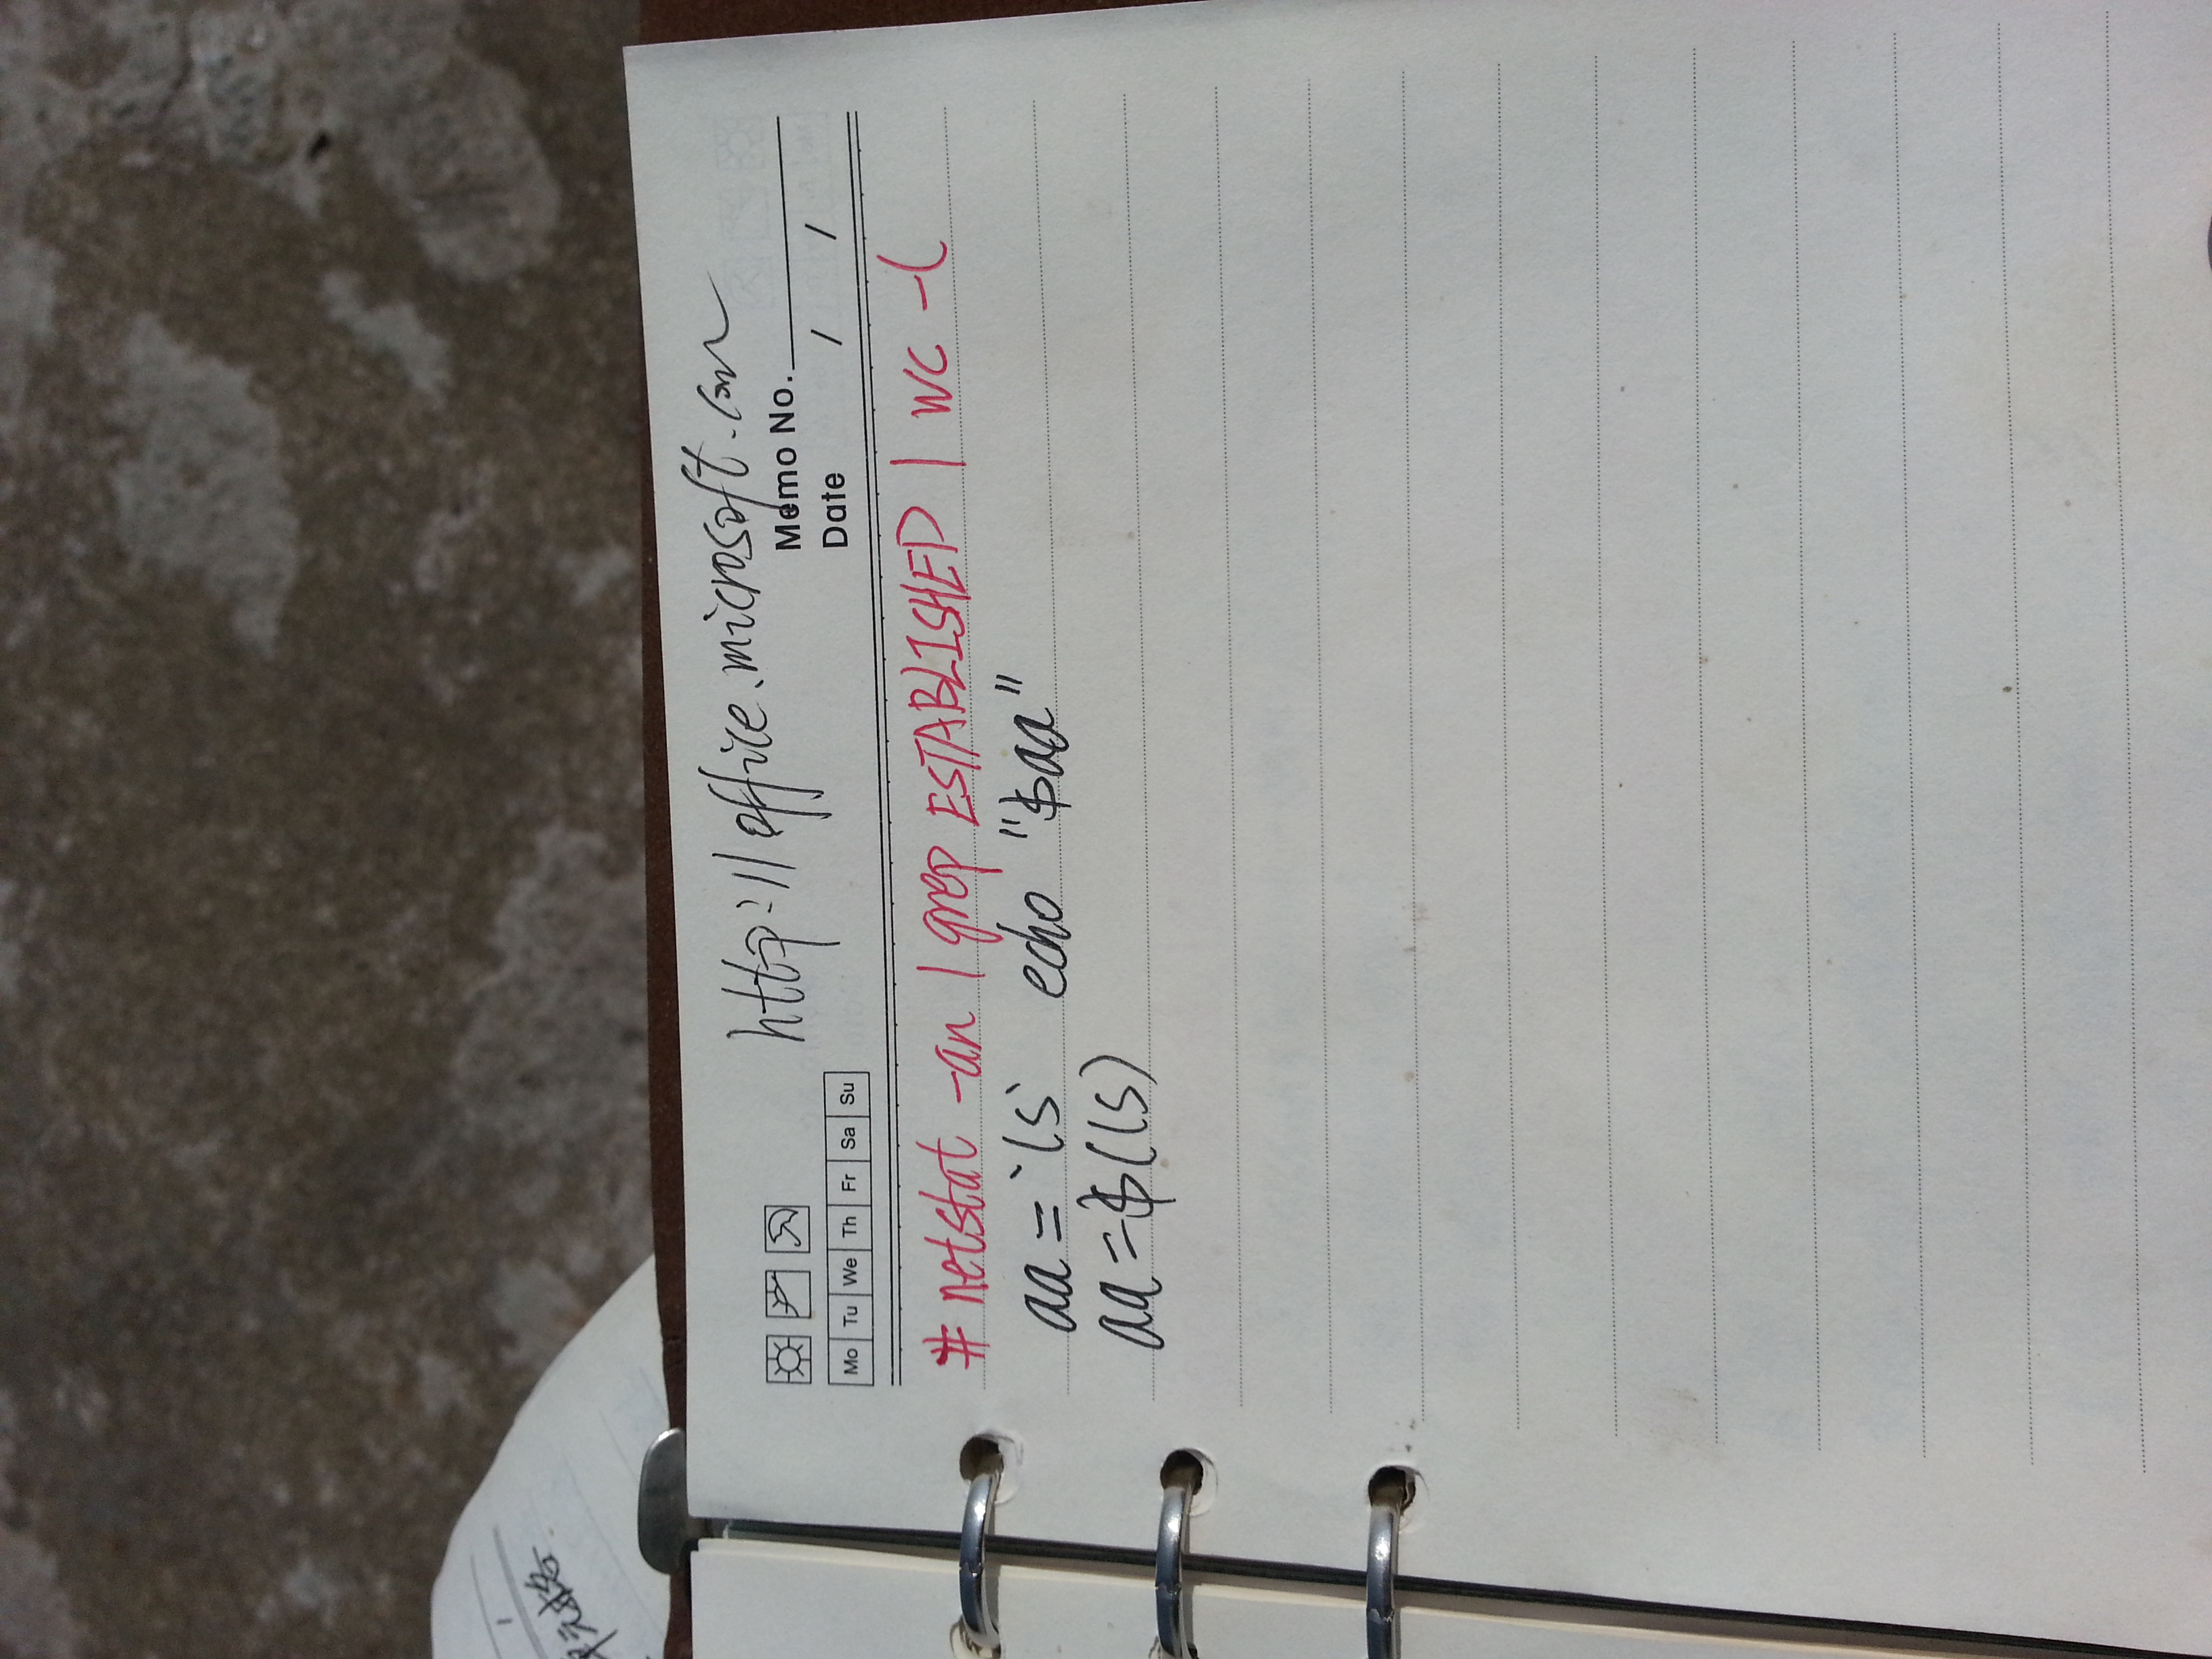 单元格
http://office.microsoft.com
Memo No.
Mo Tu We Th Fr Sa Su
Date / /
# netstat -an | grep ESTABLISHED | wc -l
aa=`ls` echo "$aa"
aa=$(ls)